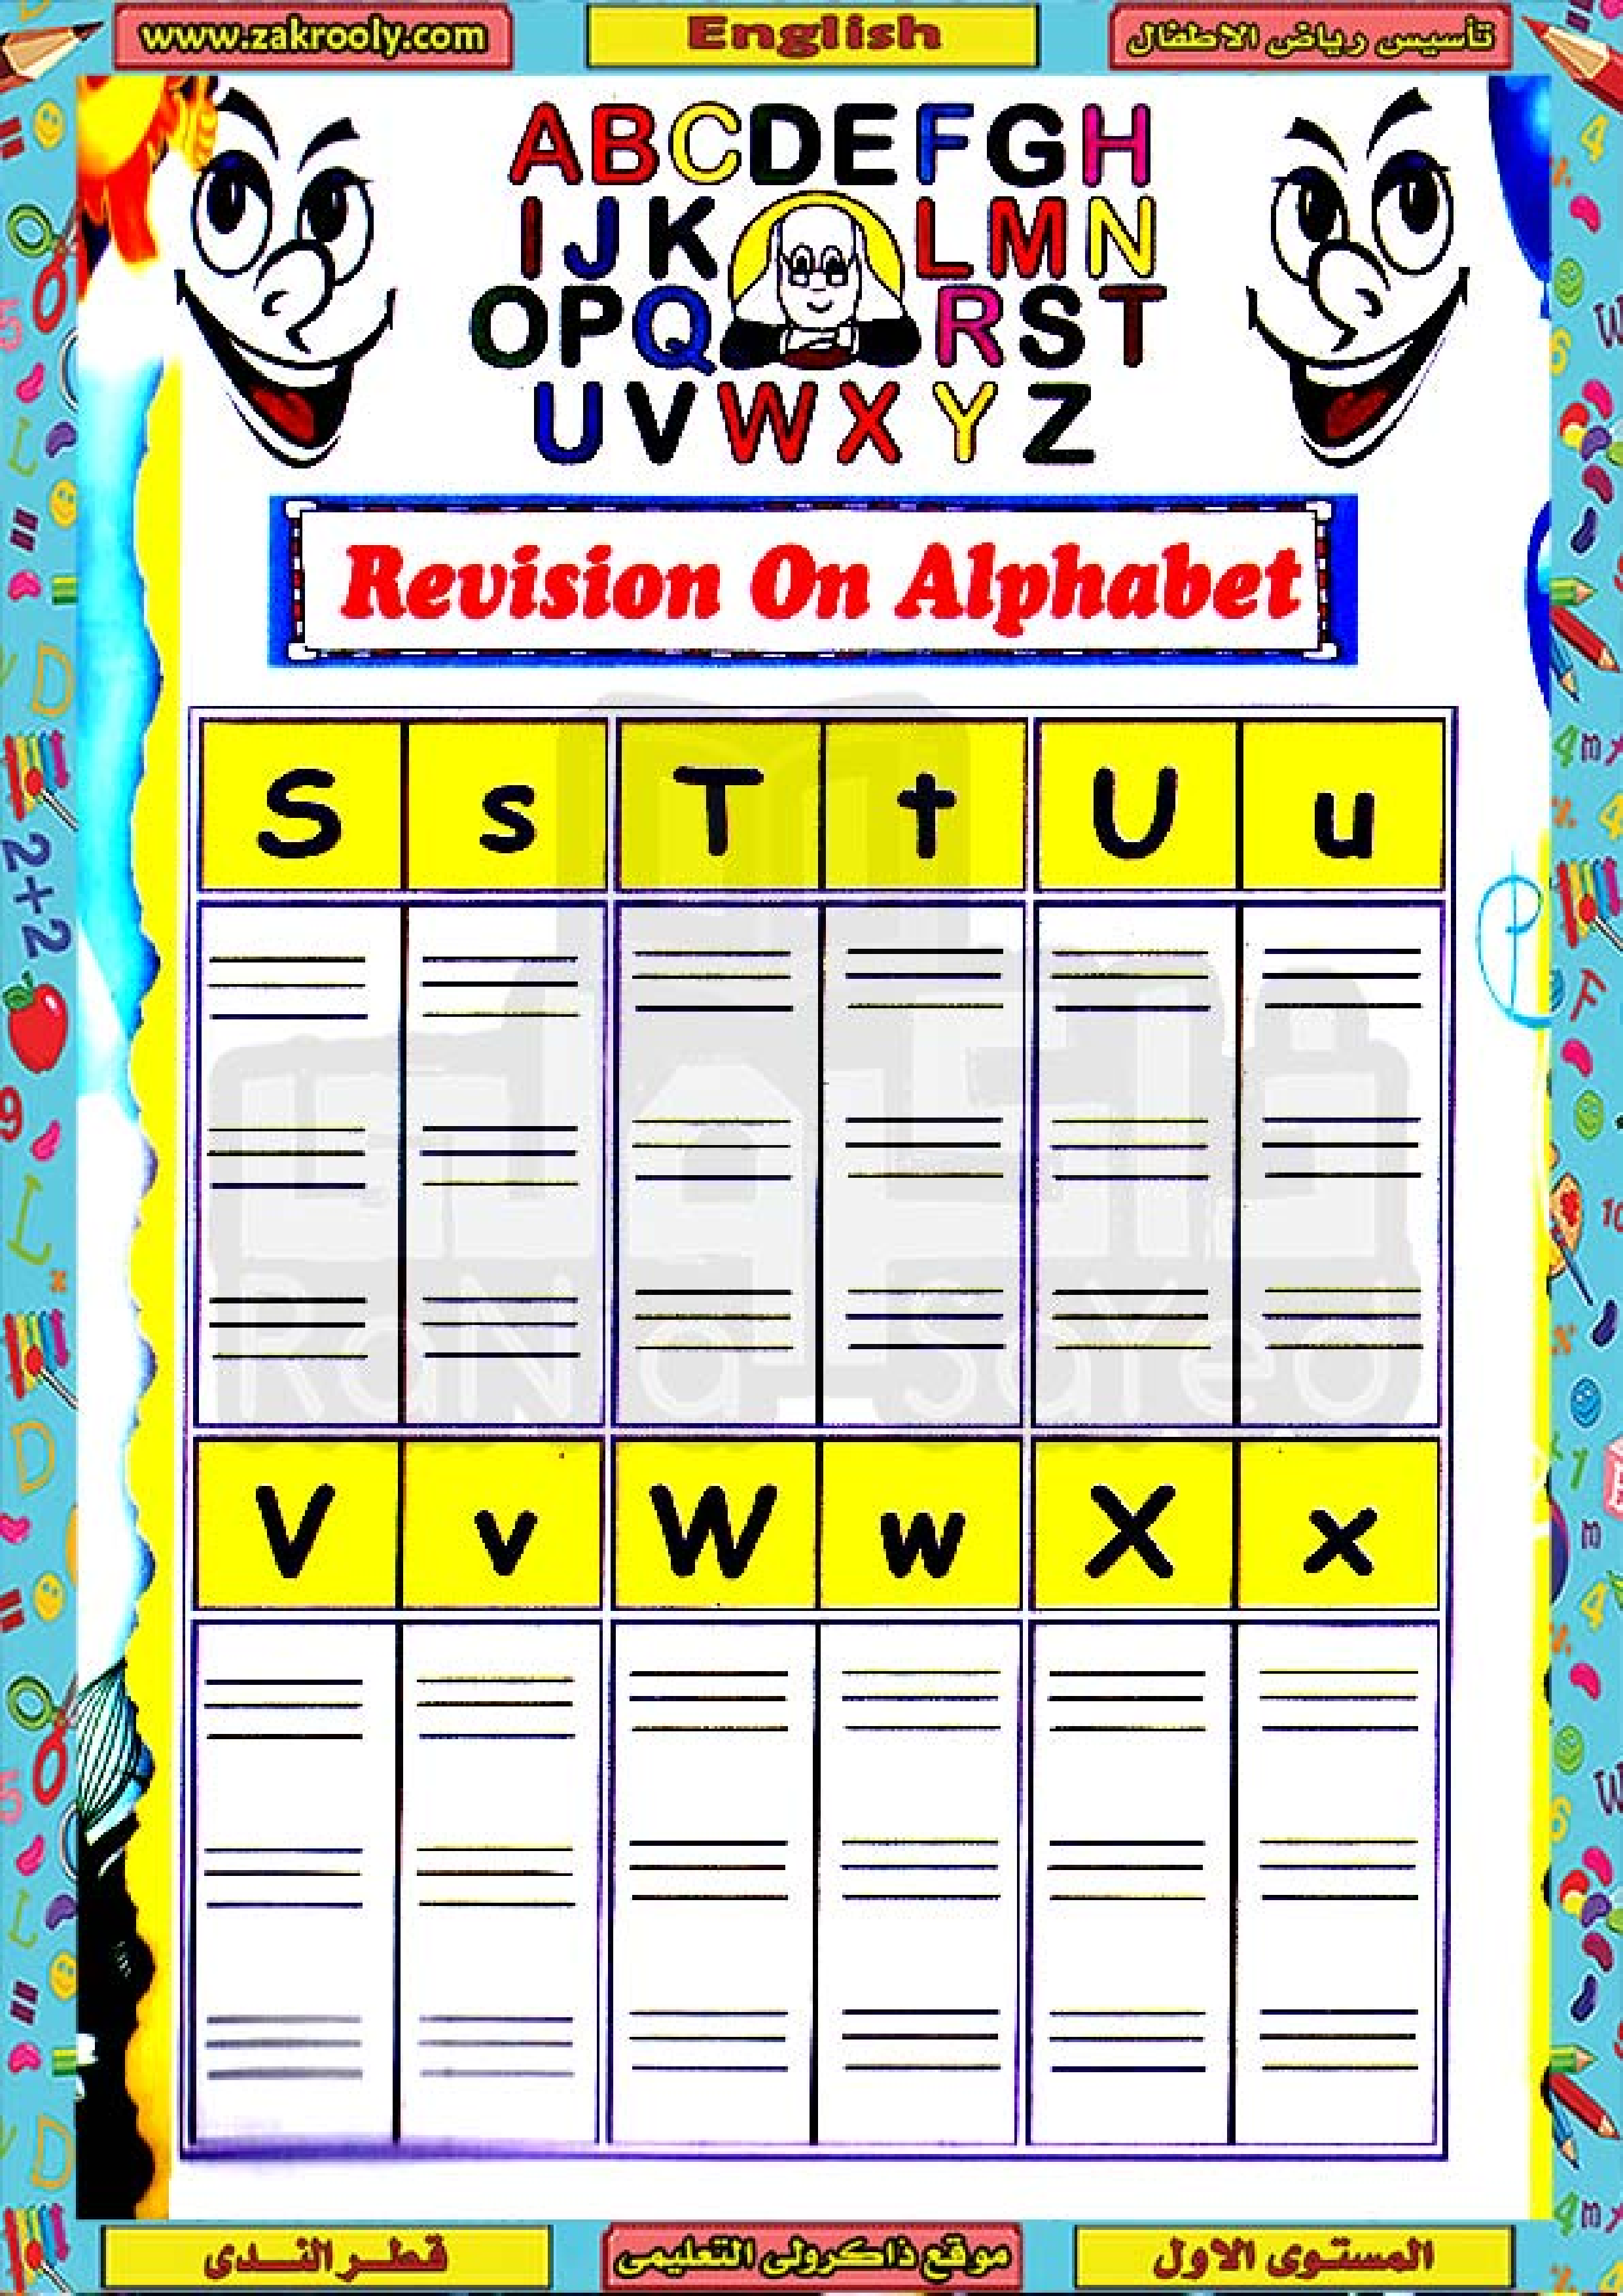 www.zakrooly.com
English
تأسيس رياض الاطفال
ABCDEFGH
IJKLMN
OPQRST
UVWXYZ
Revision On Alphabet
S s T t U u
RaNia SaYed
V v W w X x
قطر الندى
موقع ذاكرولى التعليمى
المستوى الاول